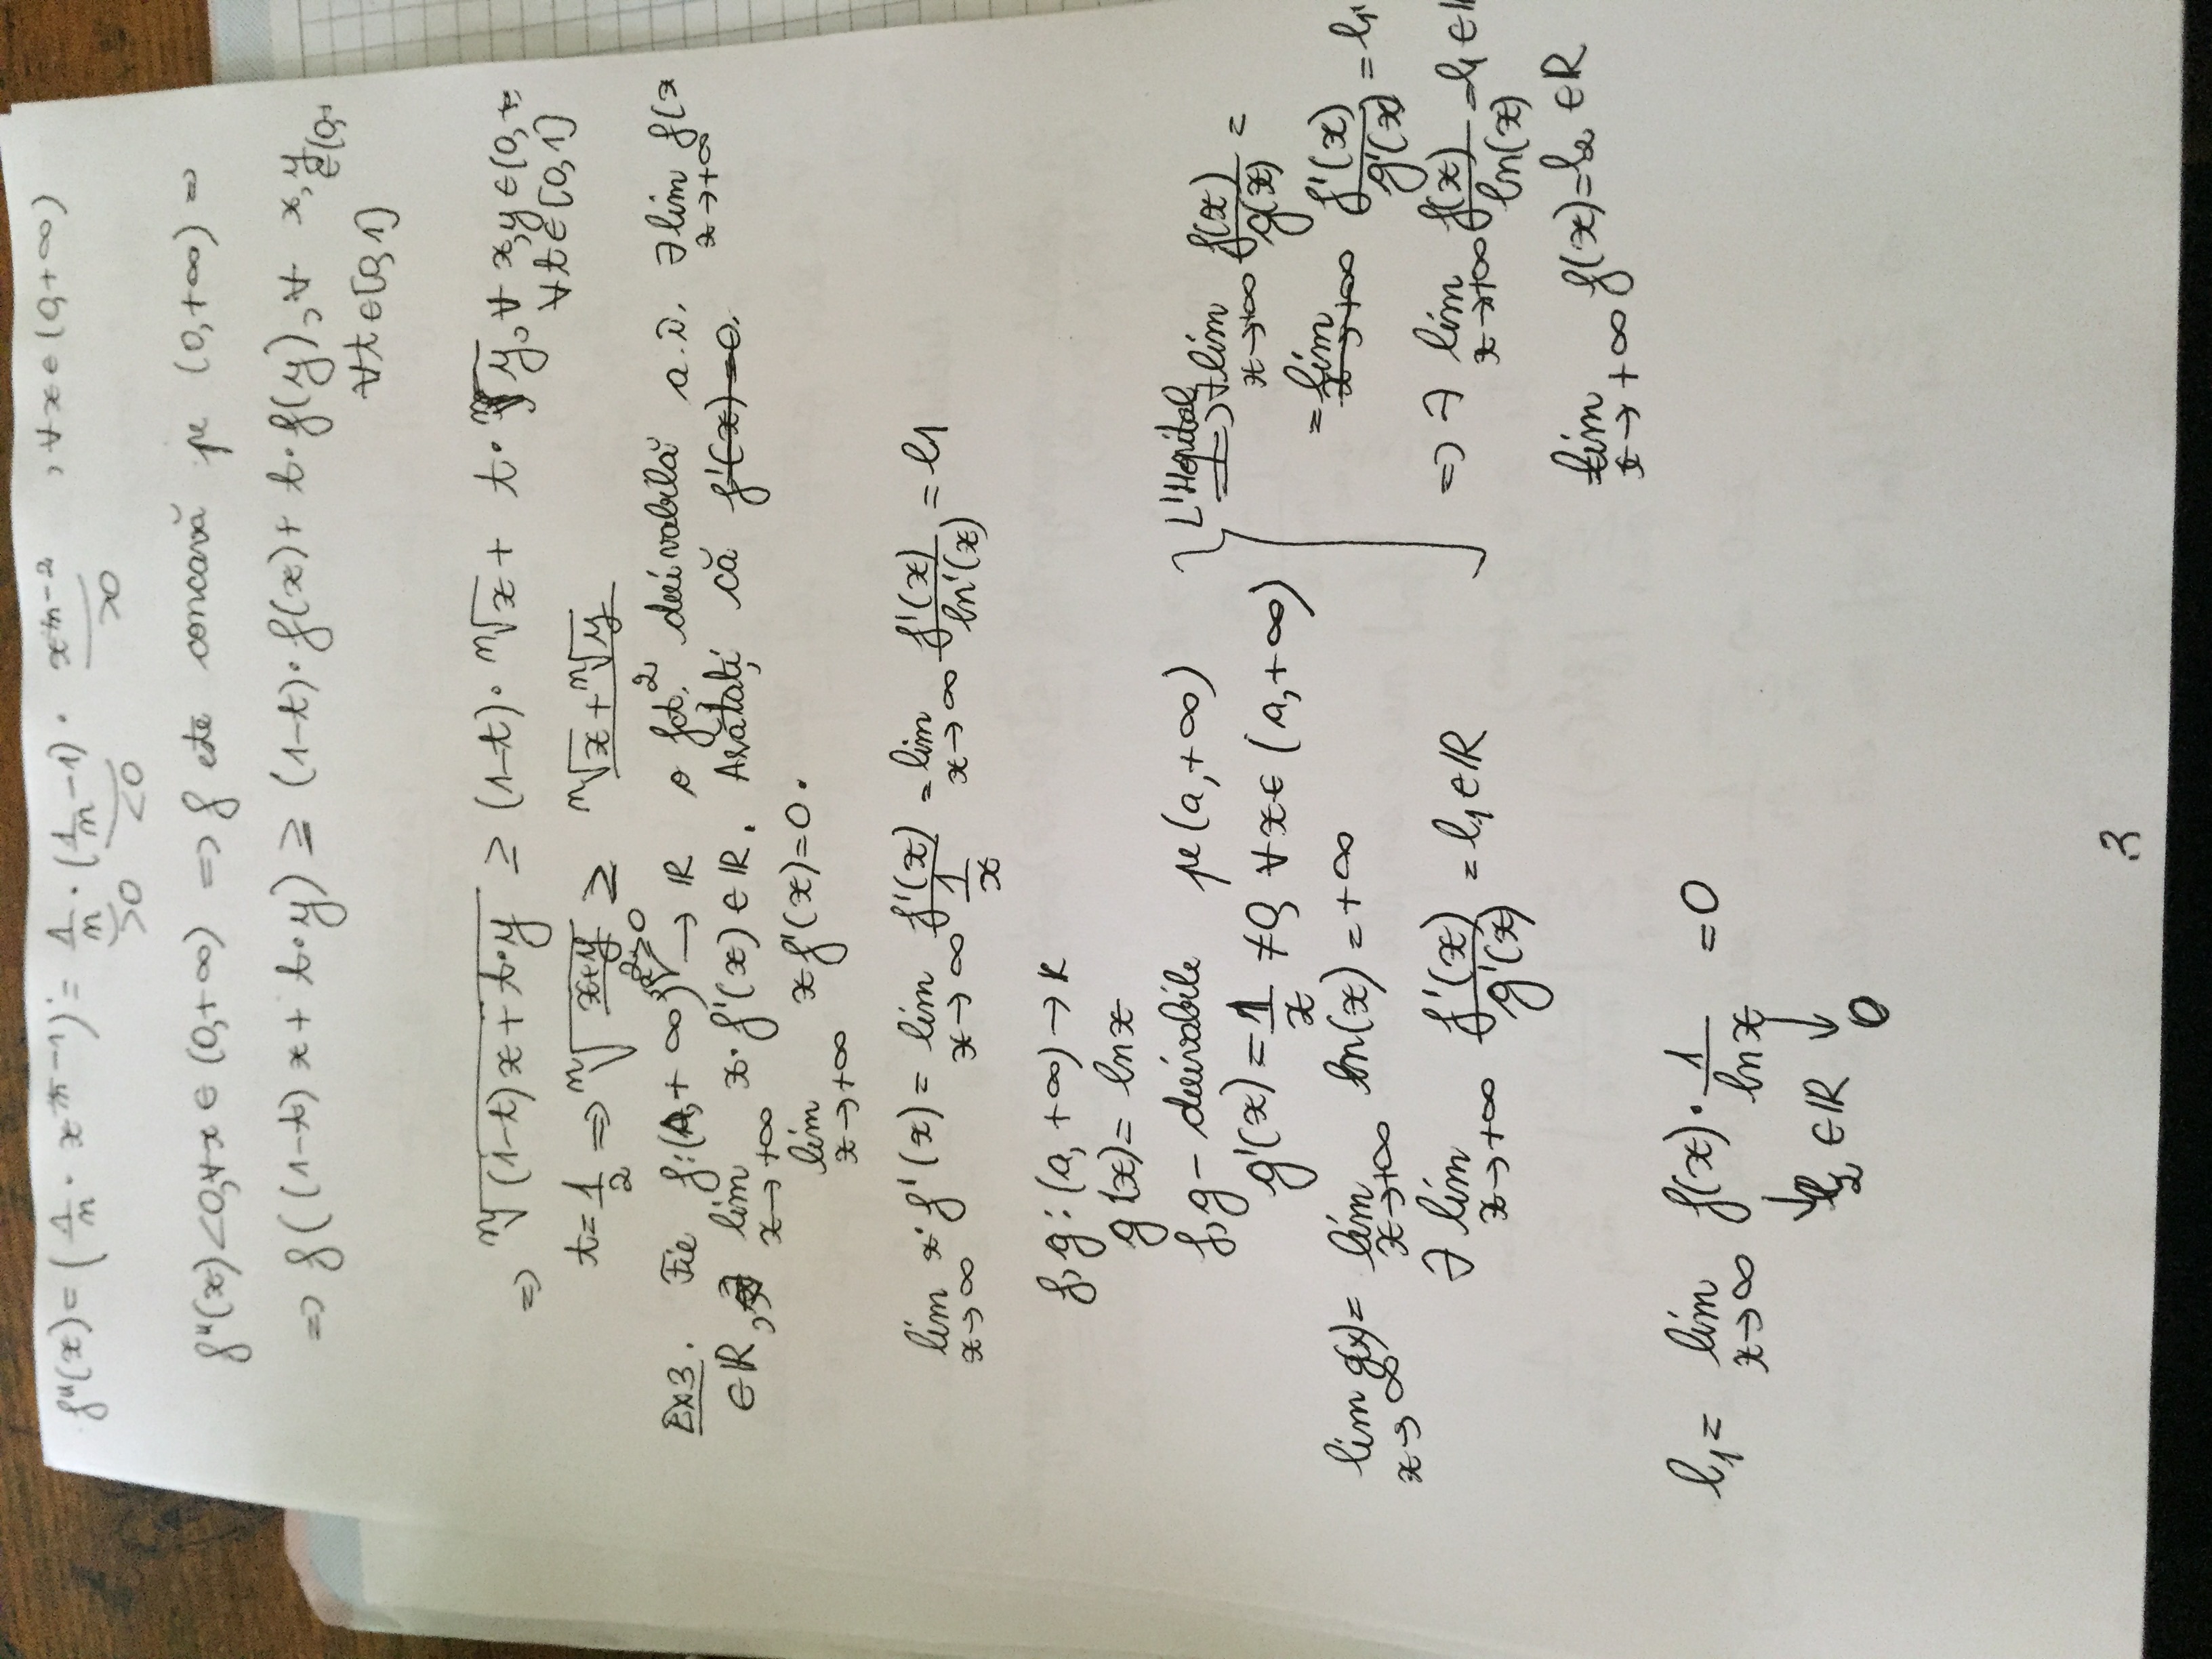 f''(x) = (1/n · x^(1/n - 1))' = 1/n · (1/n - 1) · x^(1/n - 2) , ∀x∈(0,+∞)
>0 <0 >0
f''(x)<0, ∀x∈(0,+∞) => f este concavă pe (0,+∞) =
=> f((1-t)x + t·y) ≥ (1-t)·f(x) + t·f(y), ∀ x,y ∈(0,+
∀t∈[0,1]
=> ⁿ√((1-t)x + t·y) ≥ (1-t)·ⁿ√x + t·ⁿ√y, ∀ x,y∈(0,+
∀t∈[0,1]
t = 1/2 => ⁿ√((x+y)/2) ≥ (ⁿ√x + ⁿ√y)/2
Ex3. Fie f:(a,+∞) → R o fct. derivabilă a.î. ∃ lim x→+∞ f(x
a≥0
∈R, lim x→+∞ x·f'(x)∈R. Arătați că f'(x)=0.
lim x→+∞ xf'(x)=0.
lim x→∞ x·f'(x) = lim x→∞ f'(x)/(1/x) = lim x→∞ f'(x)/ln'(x) = l₁
f,g:(a,+∞)→R
g(x)= ln x
f,g - derivabile pe (a,+∞)
g'(x)=1/x ≠0, ∀x∈(a,+∞)
lim x→∞ g(x)= lim x→+∞ ln(x)=+∞
∃ lim x→+∞ f'(x)/g'(x) = l₁∈R
L'Hopital => ∃ lim x→+∞ f(x)/g(x) =
= lim x→+∞ f'(x)/g'(x) = l₁
=> ∃ lim x→+∞ f(x)/ln(x) = l₁∈R
lim x→+∞ f(x)=l₂∈R
l₁ = lim x→∞ f(x)·1/ln x = 0
↓ l₂∈R ↓ 0
3